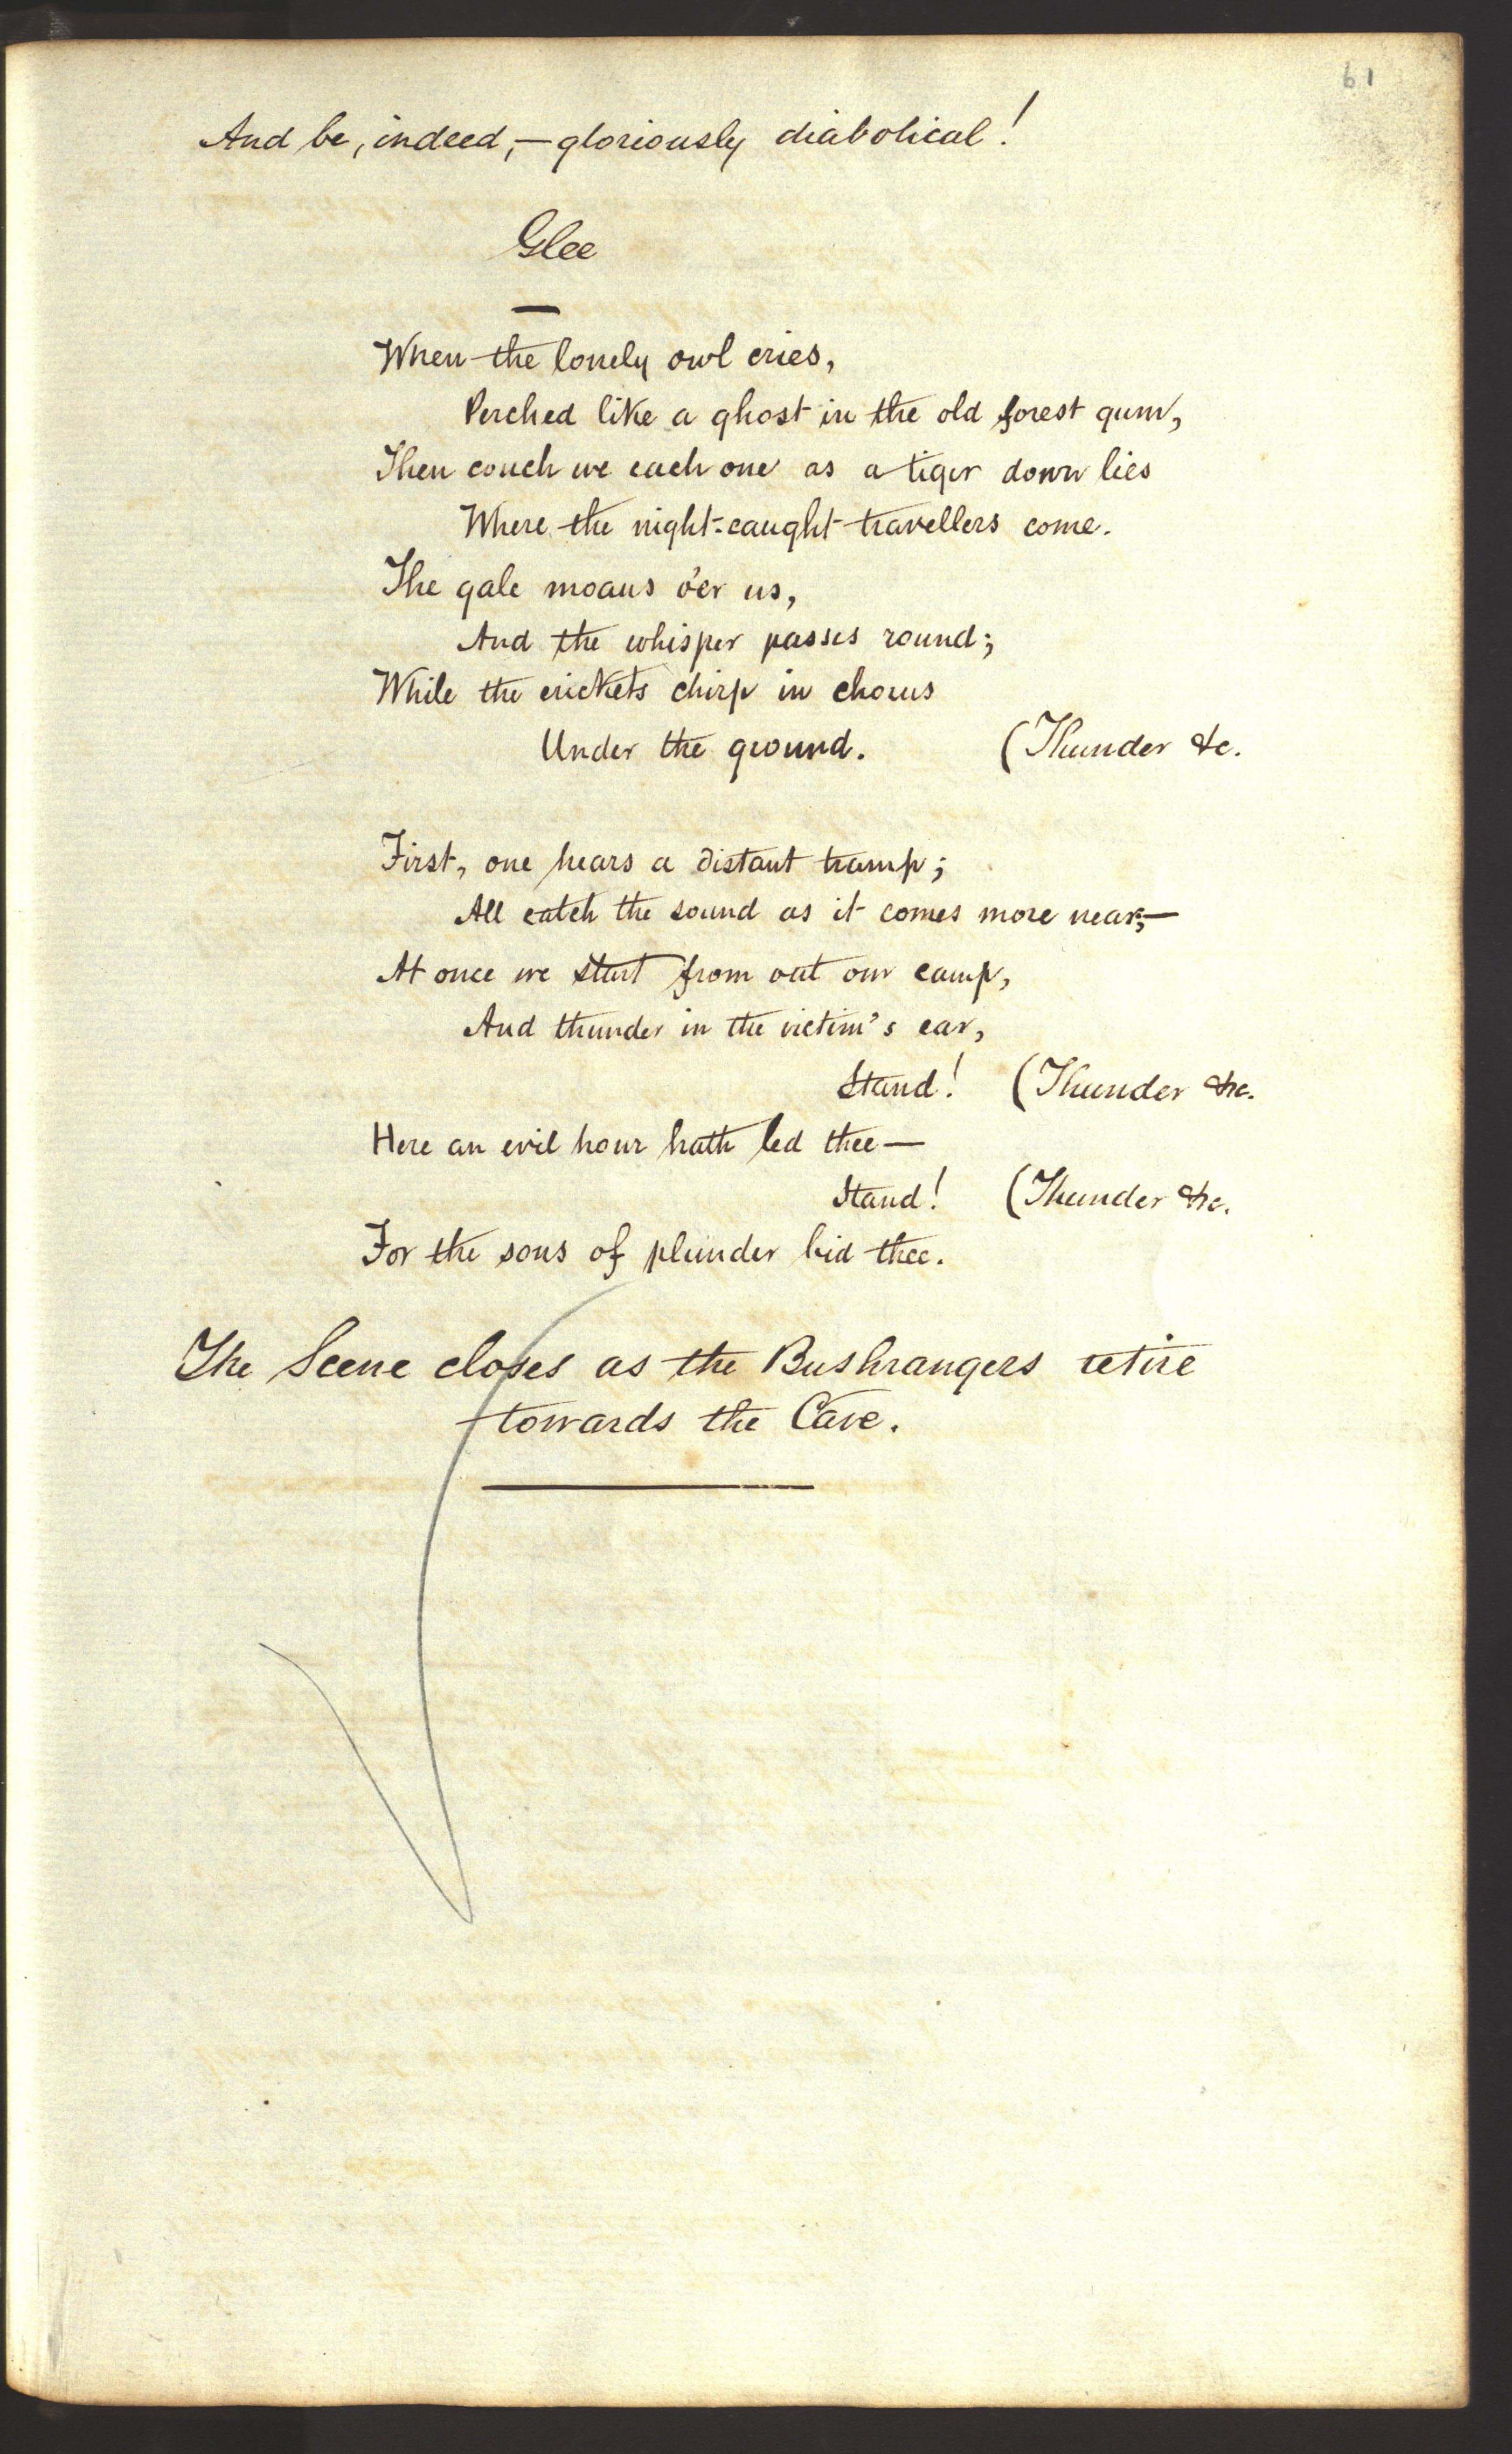 61
And be, indeed,—gloriously diabolical!
Glee
When the lonely owl cries,
Perched like a ghost in the old forest gum,
Then couch we each one as a tiger down lies
Where the night-caught travellers come.
The gale moans o'er us,
And the whisper passes round;
While the crickets chirp in chorus
Under the ground. (Thunder &c.
First, one hears a distant tramp;
All catch the sound as it comes more near;—
At once we start from out our camp,
And thunder in the victim's ear,
Stand! (Thunder &c.
Here an evil hour hath led thee—
Stand! (Thunder &c.
For the sons of plunder bid thee.
The Scene closes as the Bushrangers retire
towards the Cave.